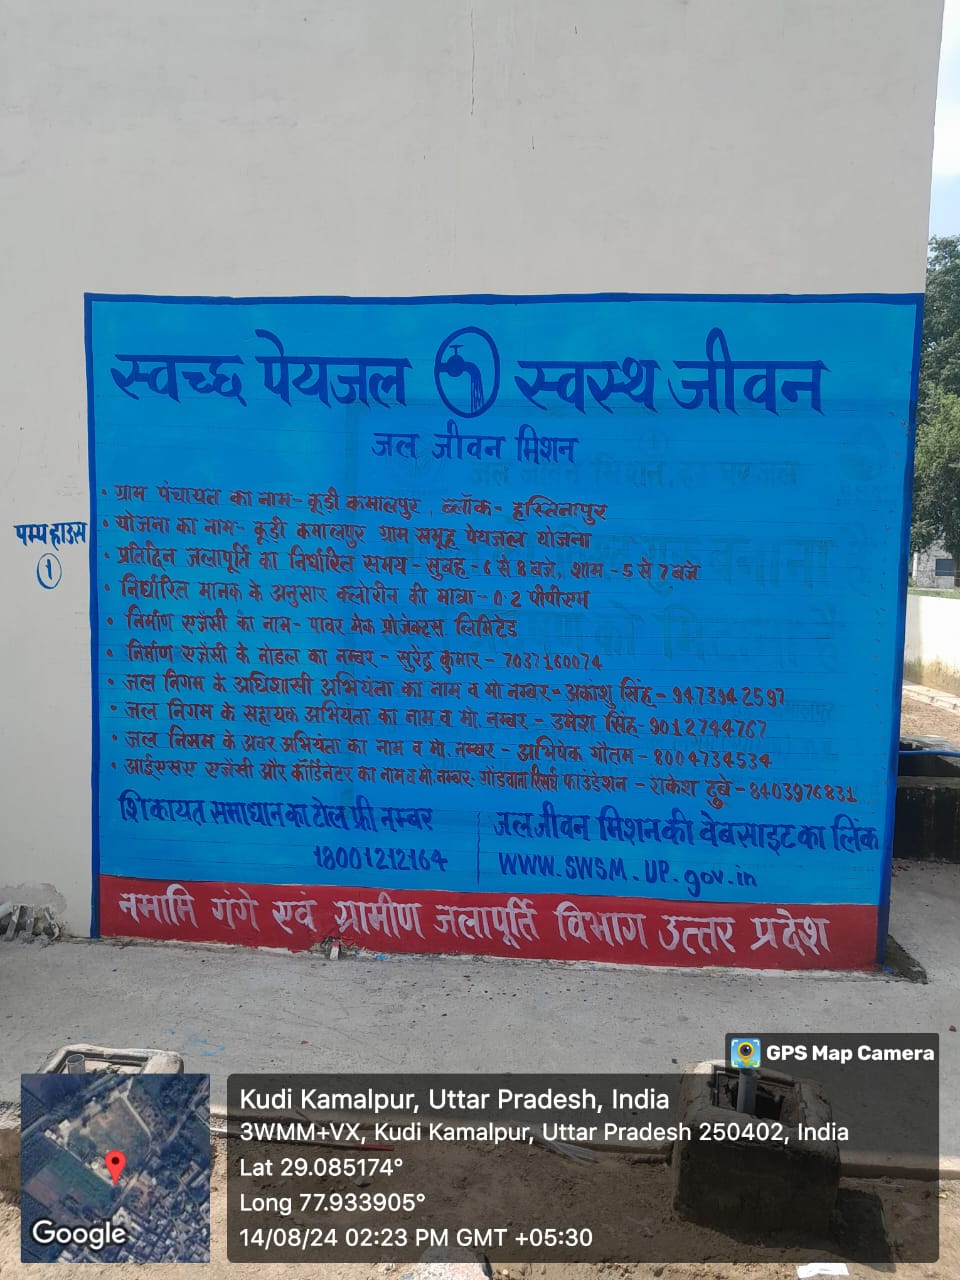 स्वच्छ पेयजल स्वस्थ जीवन
जल जीवन मिशन
• ग्राम पंचायत का नाम- कूड़ी कमालपुर, ब्लॉक- हस्तिनापुर
• योजना का नाम- कूड़ी कमालपुर ग्राम समूह पेयजल योजना
• प्रतिदिन जलापूर्ति का निर्धारित समय- सुबह- 6 से 8 बजे, शाम- 5 से 7 बजे
• निर्धारित मानक के अनुसार क्लोरीन की मात्रा- 0.2 पीपीएम
• निर्माण एजेंसी का नाम- पावर मेक प्रोजेक्ट्स लिमिटेड
• निर्माण एजेंसी के नोडल का नम्बर- सुरेंद्र कुमार- 7037160074
• जल निगम के अधिशासी अभियंता का नाम व मो. नम्बर- अकांशु सिंह- 9473942597
• जल निगम के सहायक अभियंता का नाम व मो. नम्बर- उमेश सिंह- 9012744767
• जल निगम के अवर अभियंता का नाम व मो. नम्बर- अभिषेक गौतम- 8004734534
• आईएसए एजेंसी और कॉर्डिनेटर का नाम व मो. नम्बर- गोंडवाना रिसर्च फाउंडेशन- राकेश दुबे- 8403976831
शिकायत समाधान का टोल फ्री नम्बर
18001212164
जल जीवन मिशन की वेबसाइट का लिंक
WWW.SWSM.UP.gov.in
नमामि गंगे एवं ग्रामीण जलापूर्ति विभाग उत्तर प्रदेश
पम्प हाउस
1
GPS Map Camera
Kudi Kamalpur, Uttar Pradesh, India
3WMM+VX, Kudi Kamalpur, Uttar Pradesh 250402, India
Lat 29.085174°
Long 77.933905°
14/08/24 02:23 PM GMT +05:30
Google